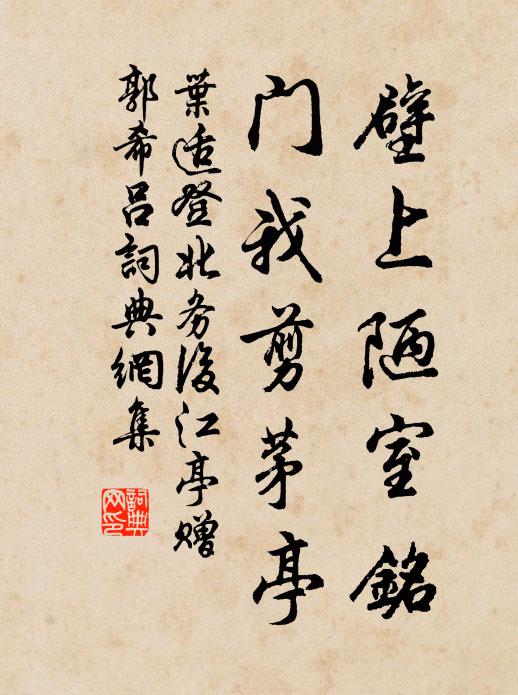 壁上陋室銘
門我剪茅亭
葉適登北务後江亭贈
郭希吕詞典網集
詞典网印